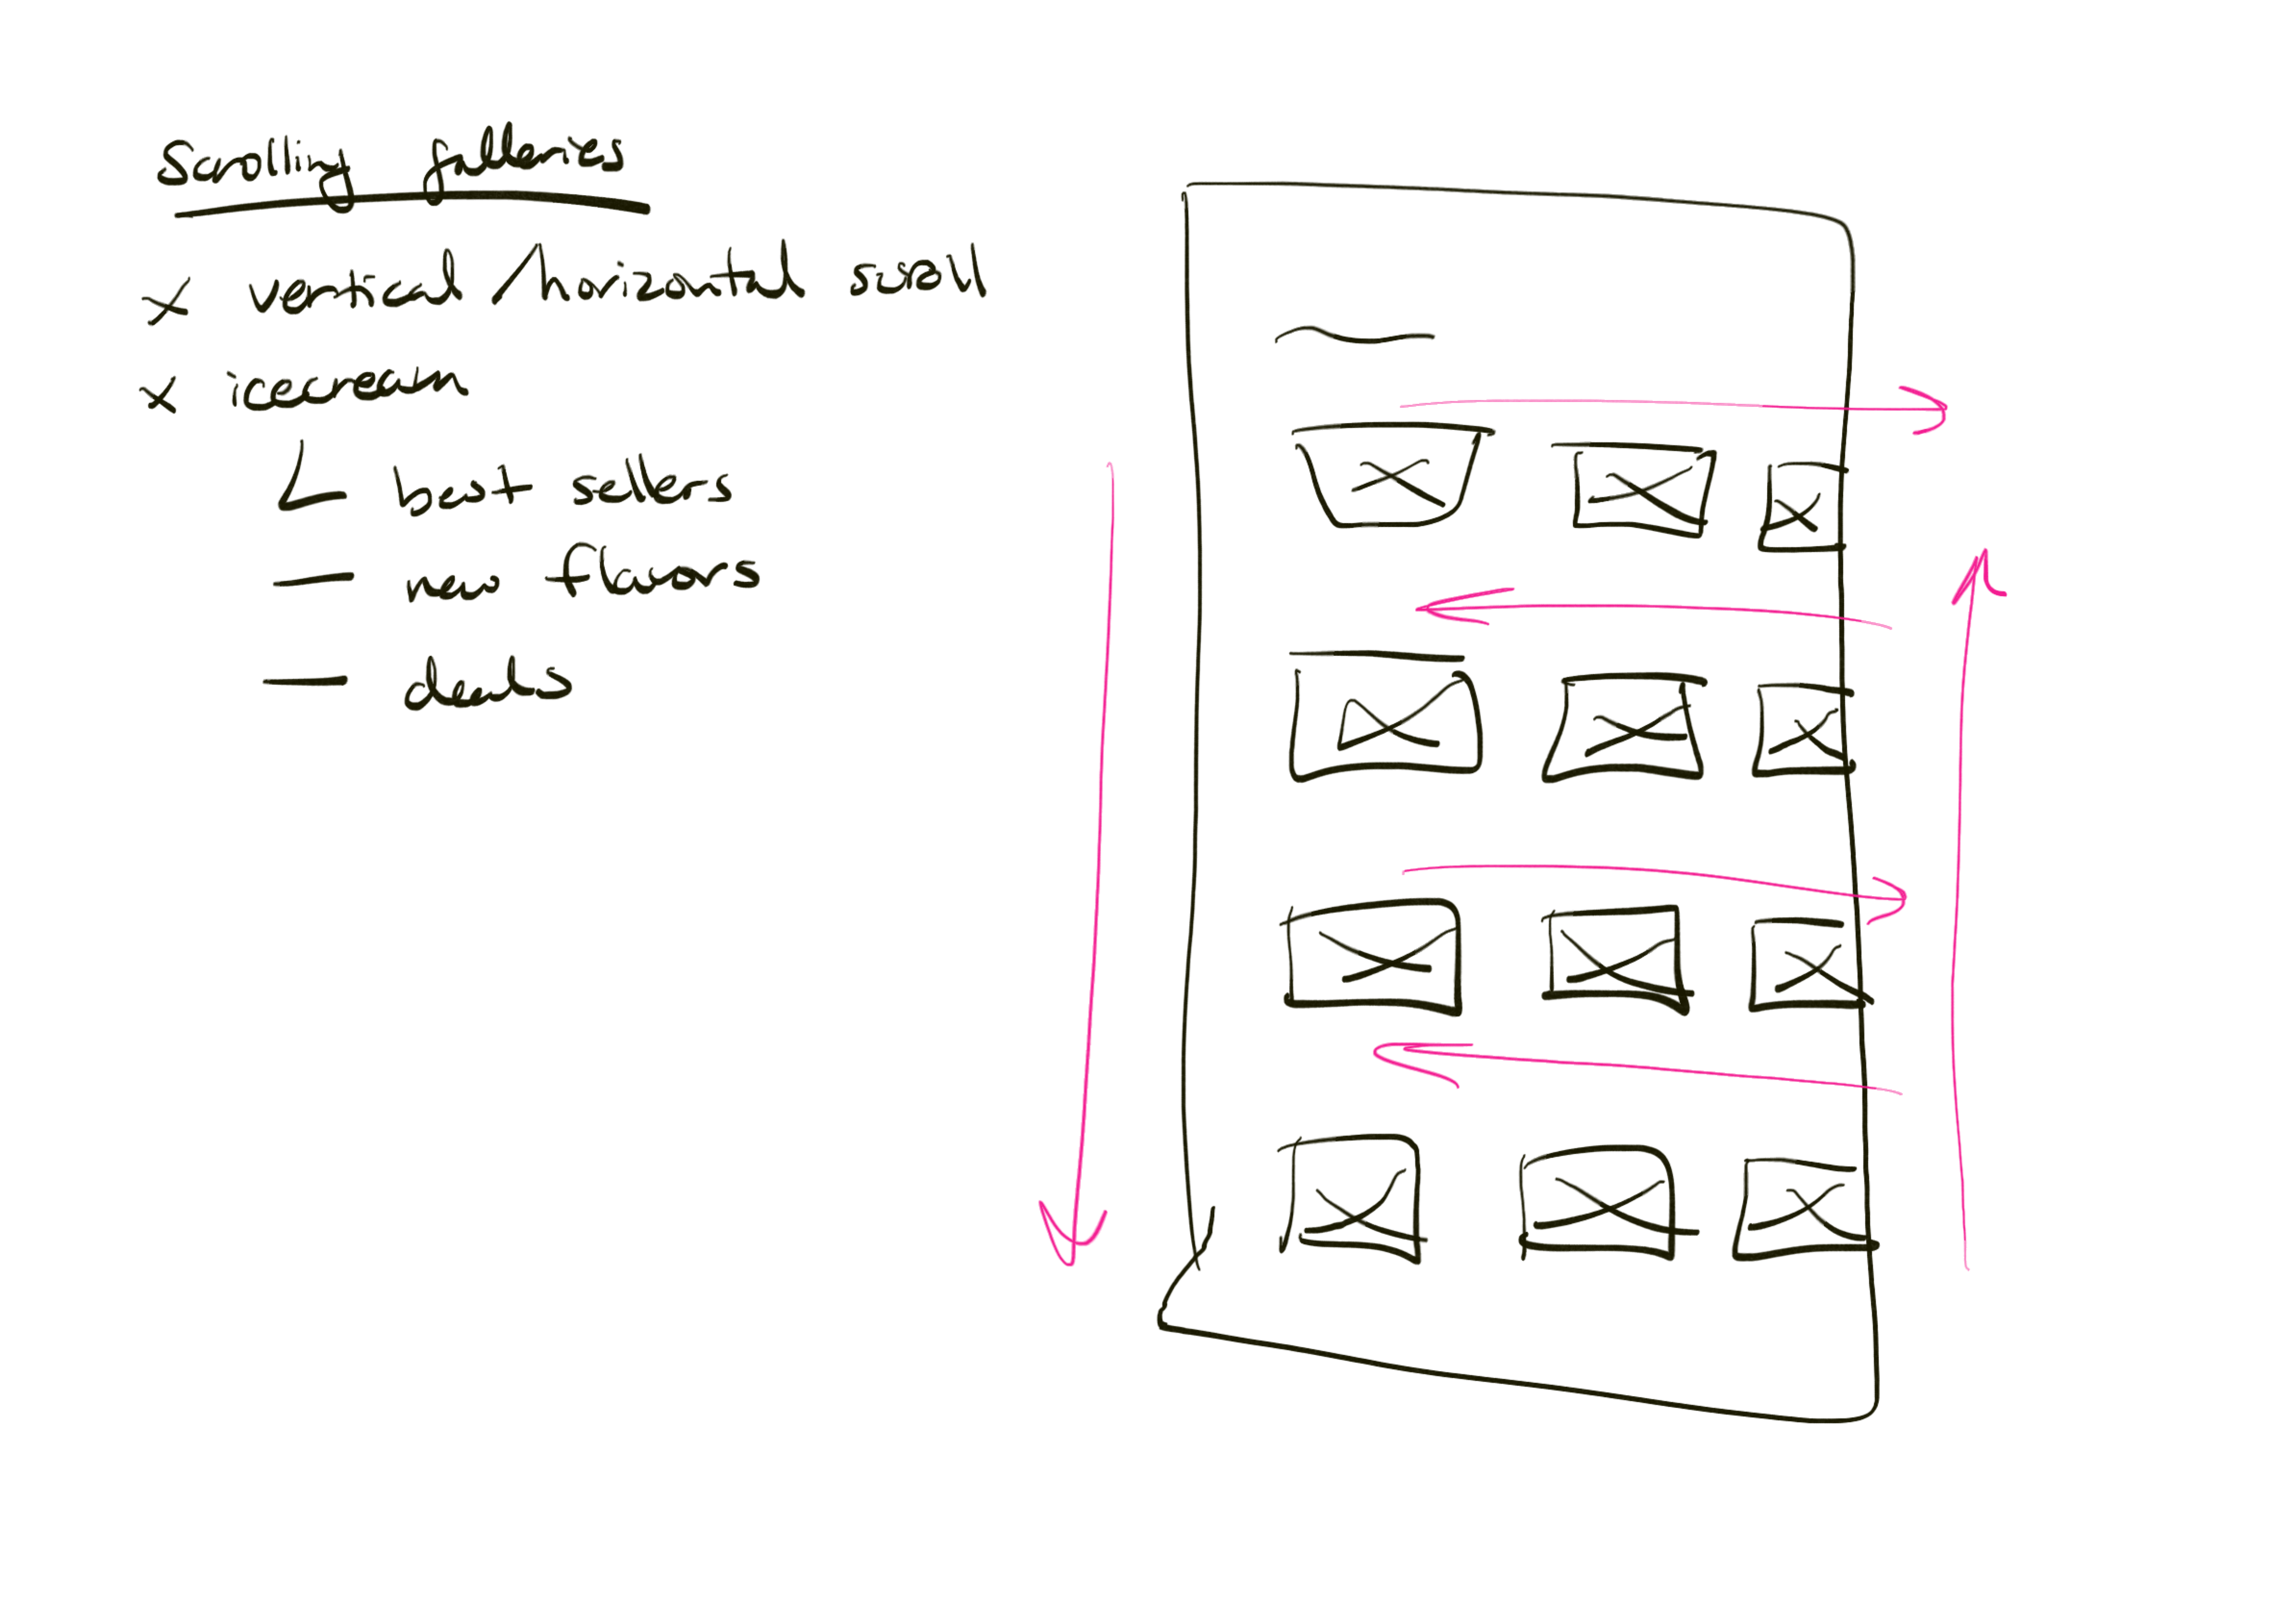 Scrolling galleries
x vertical/horizontal scroll
x icecream
L best sellers
— new flavors
— deals